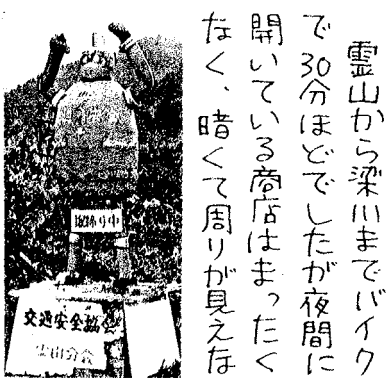 霊山から梁川までバイク
で30分ほどでしたが夜間に
開いている商店はまったく
なく、暗くて周りが見えな
交通安全協会
霊山分会